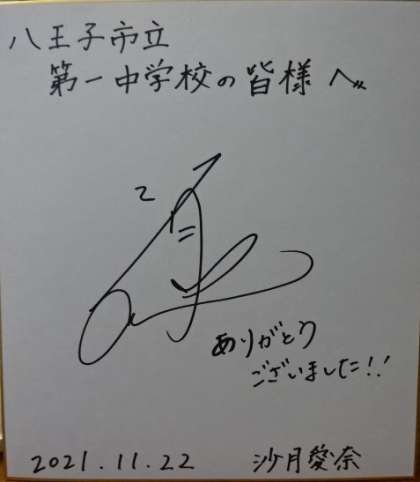 八王子市立
第一中学校の皆様へ
ありがとう
ございました!!
2021.11.22 沙月愛奈